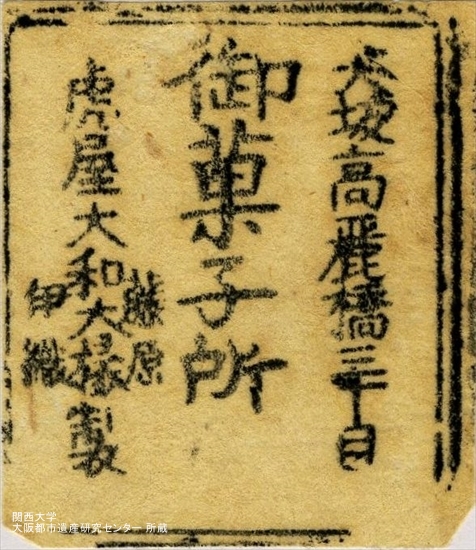 大坂高麗橋三丁目
御菓子所
虎屋大和大掾製
藤原
伊織
関西大学
大阪都市遺産研究センター 所蔵